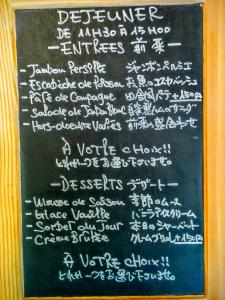 DEJEUNER
DE 11H30 A 15H00
—ENTREES 前菜—
- Jambon Persillé ジャンボンペルシエ
- Escabèche de Poisson お魚のエスカベッシュ
- Pâté de Campagne 田舎風パテ +150円
- Salade de
- Hors-d'oeuvre Variés 前菜の盛合わせ
À VOTRE CHOIX!!
どれか一つをお選び下さいませ。
—DESSERTS デザート—
- Mousse de Saison 季節のムース
- Glace Vanille バニラアイスクリーム
- Sorbet du Jour 本日のシャーベット
- Crème Brûlée クレームブリュレ+150円
À VOTRE CHOIX!!
どれか一つをお選び下さいませ。